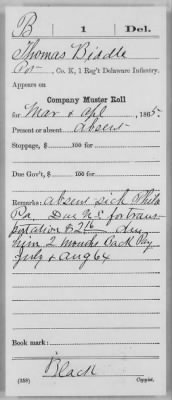 B 1 Del.
Thomas Biddle
Pvt., Co. K, 1 Reg't Delaware Infantry.
Appears on
Company Muster Roll
for Mar & Apl, 1865.
Present or absent Absent
Stoppage, $ 100 for
Due Gov't, $ 100 for
Remarks: absent sick Phila
Pa. Due U.S. for trans
portation $2 16 due
him 2 months back Pay
July & Aug 64
Book mark:
Black
(358) Copyist.